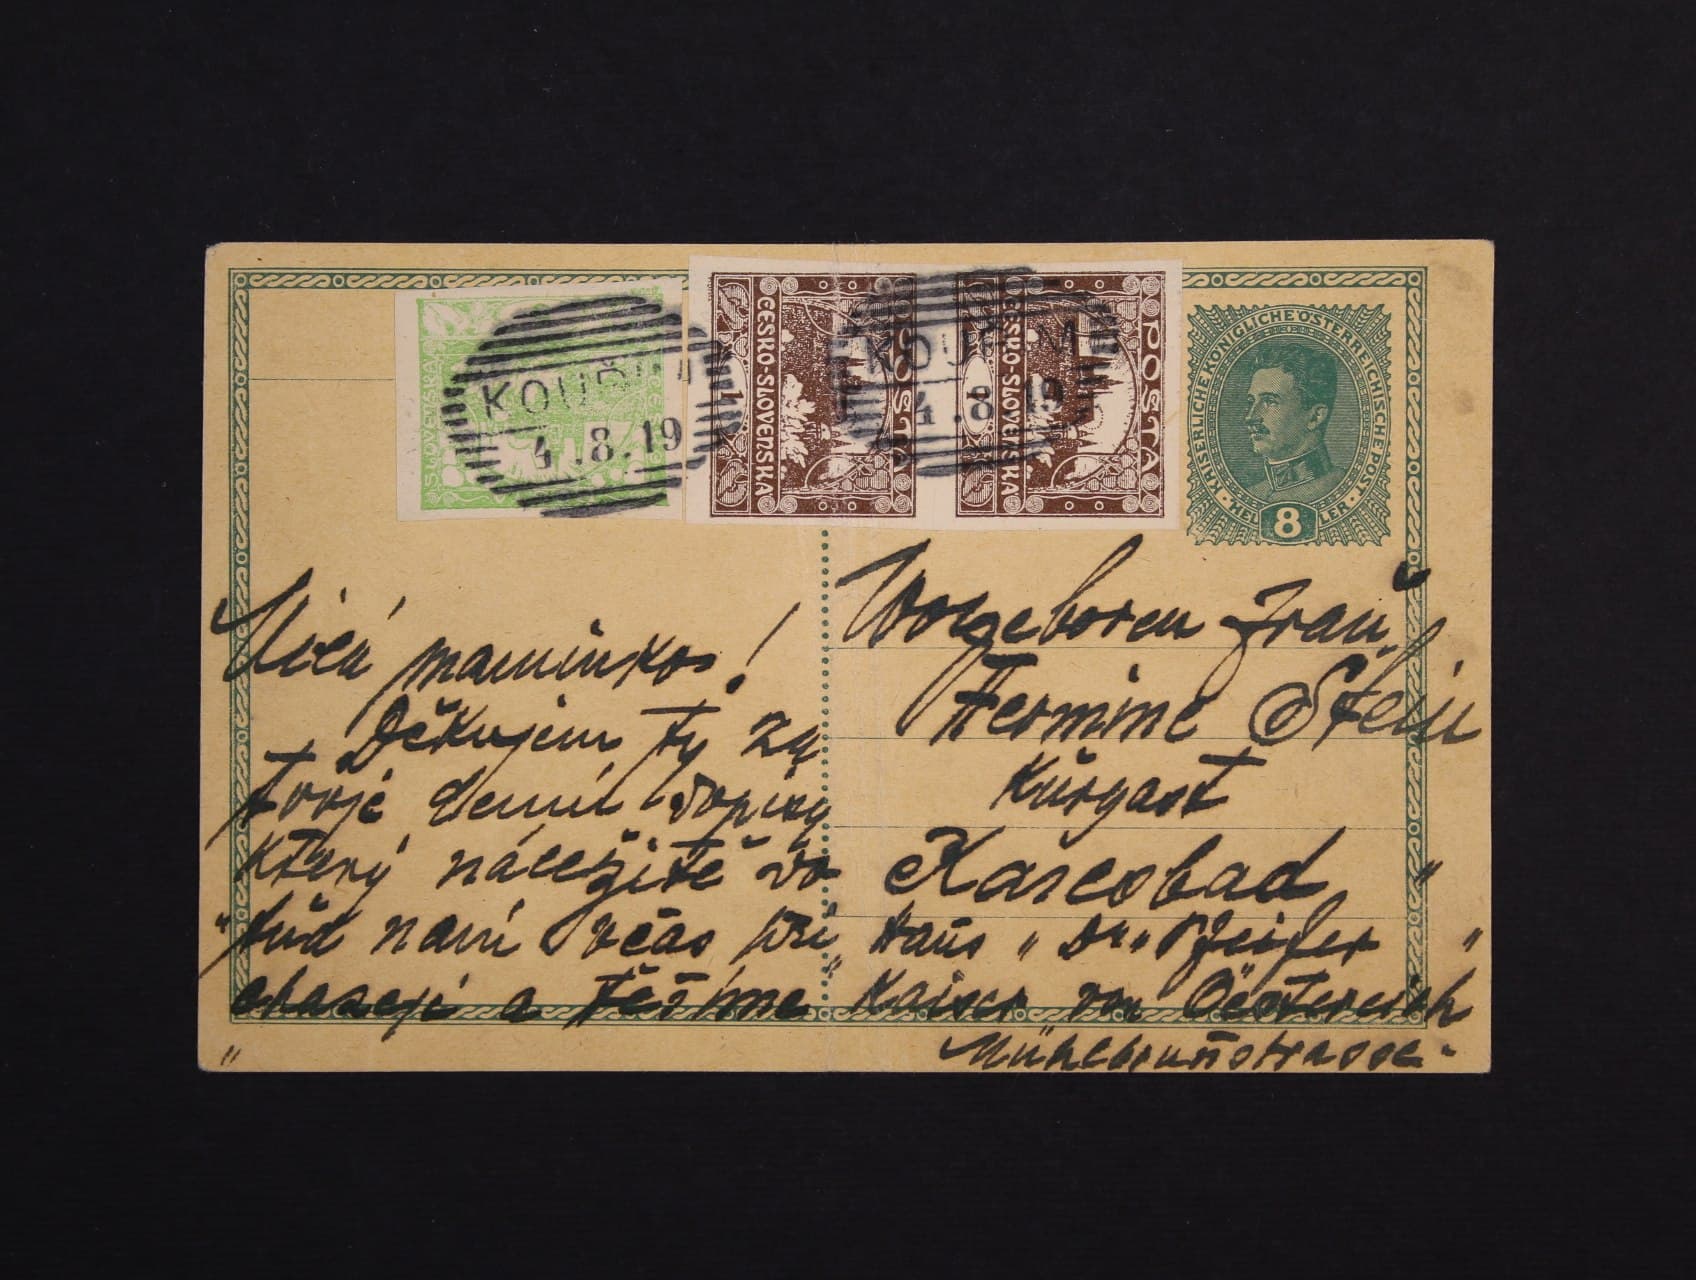 KOUŘIM
4.8.19
ČESKO-SLOVENSKÁ
POŠTA
1
KOUŘIM
4.8.19
ČESKO-SLOVENSKÁ
POŠTA
KAISERLICHE KÖNIGLICHE ÖSTERREICHISCHE POST
HELLER
8
Milá maminko!
Děkujem Ty za
tvojé denní dopisy
který náležitě do
"tud naní včas při"
chazejí a těšíme
"
Wolgeboren Frau
Hermine Stein
Kurgast
Karlsbad "
Haus "Dr" Pfeifer "
Kaiser von Oesterreich
Mühlbrunstrasse.